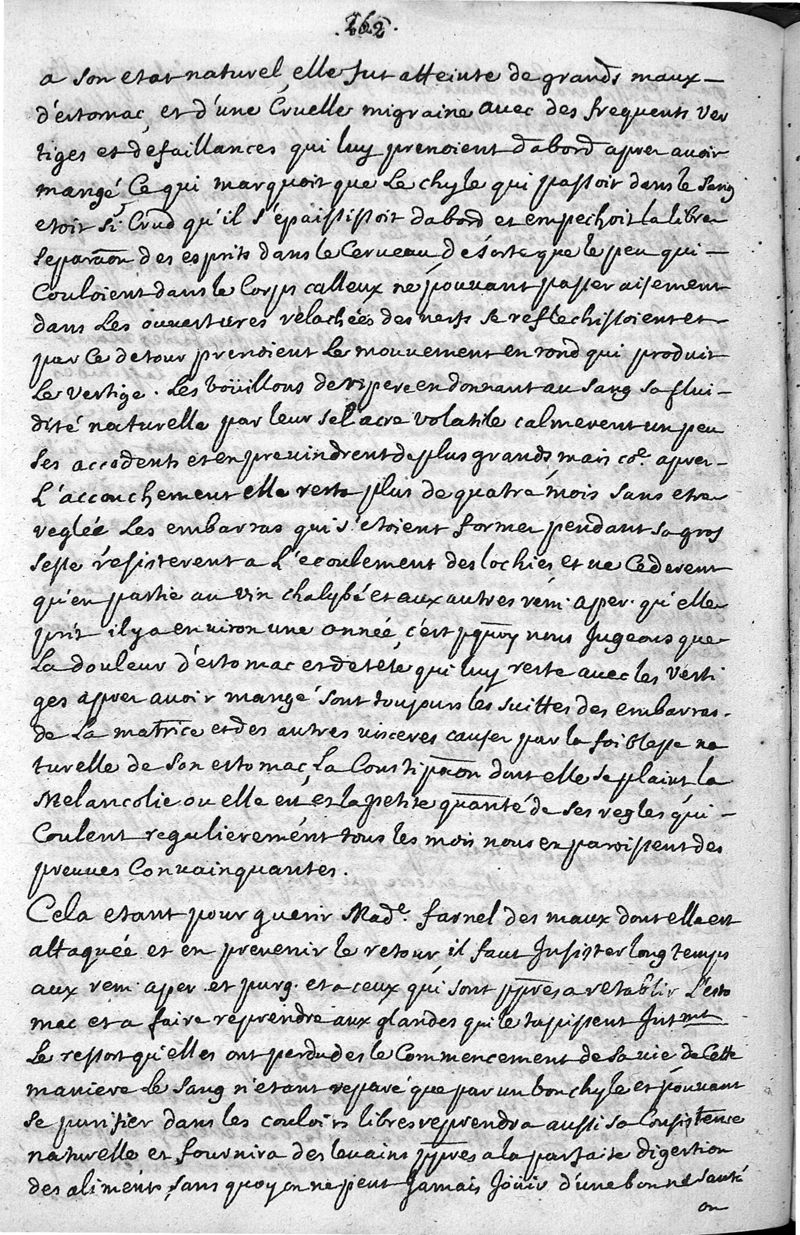 .262.
a son etat naturel, elle fut atteinte de grands maux
d'estomac, et d'une Cruelle migraine avec des frequents ver
tiges et defaillances qui luy prenoient dabord apres avoir
mangé Ce qui marquoit que Le chyle qui passoit dans le sang
etoit si Crud qu'il s'épaississoit dabord et empechoit la libre
separaōn des esprits dans le Cerveau de sorte que le peu qui
Couloient dans le Corps calleux ne pouvant passer aisement
dans Les ouvertures relachées des nerfs se reflechissoient et
par Ce detour prenoient Le mouvement en rond qui produit
Le vertige. Les boüillons de vipere en donnant au sang sa flui
dité naturelle par leur sel acre volatile calmerent un peu
ses accidents et en previndrent de plus grands, mais cōe. apres
L'accouchement elle resta plus de quatre mois sans etre
reglée Les embarras qui s'etoient formes pendant sa gros
sesse résisterent a L'écoulement des lochies et ne Cederent
qu'en partie au vin chalybé et aux autres rem. aper. qu'elle
prit il y a environ une année, c'est pquoy nous Jugeons que
La douleur d'estomac et de tete qui luy reste avec les verti
ges apres avoir mangé sont toujours les suittes des embarras
de La matrice et des autres visceres causes par la foiblesse na
turelle de son estomac, La Constipaōn dont elle se plaint la
Melancolie ou elle est, et la petite quantité de ses regles qui
Coulent regulierement tous les mois nous en paroissent des
preuves Convainquantes.
Cela etant pour guerir Made. farnel des maux dont elle est
attaquée et en prevenir le retour il faut Insister long temps
aux rem. aper. et purg. et a ceux qui sont ppres a retablir L'esto
mac et a faire reprendre aux glandes qui le tapissent Intmt
Le ressort qu'elles ont perdu des le Commencement de sa vie de Cette
maniere Le sang n'etant reparé que par un bon chyle et pouvant
se purifier dans les couloirs libres reprendra aussi sa Consistence
naturelle et fournira des levains ppres a la parfaite digestion
des aliments, sans quoy on ne peut Jamais Joüir d'une bonne santé
on